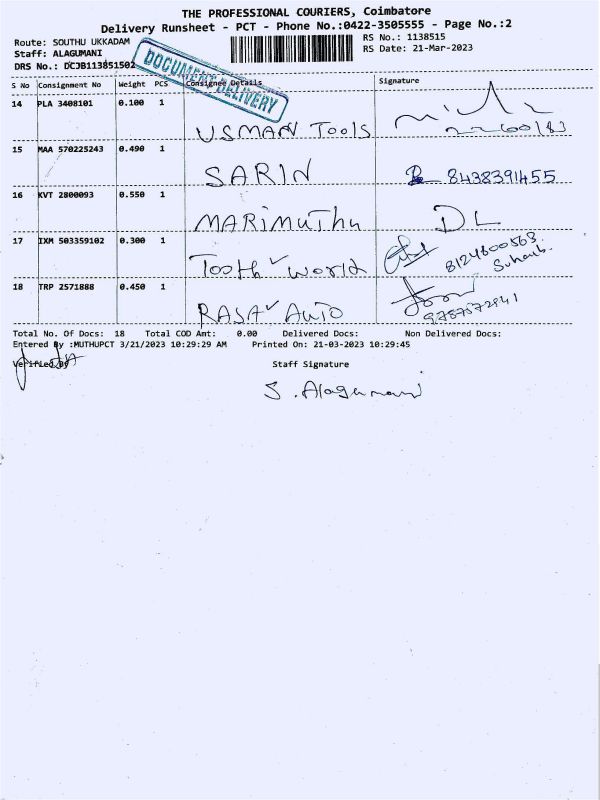 THE PROFESSIONAL COURIERS, Coimbatore
Delivery Runsheet - PCT - Phone No.:0422-3505555 - Page No.:2
Route: SOUTHU UKKADAM
RS No.: 1138515
Staff: ALAGUMANI
RS Date: 21-Mar-2023
DRS No.: DCJB113851502
DOCUMENT DELIVERY
S No Consignment No Weight PCS Consignee Details Signature
14 PLA 3408101 0.100 1
USMAN Tools
15 MAA 570225243 0.490 1
SARIN 8438391455
16 KVT 2800093 0.550 1
MARIMUTHU DL
17 IXM 503359102 0.300 1
Tooth World 8124600563
Suhaib.
18 TRP 2571888 0.450 1
RASA AUTO
Total No. Of Docs: 18 Total COD Amt: 0.00 Delivered Docs: Non Delivered Docs:
Entered By :MUTHUPCT 3/21/2023 10:29:29 AM Printed On: 21-03-2023 10:29:45
Verified By Staff Signature
S. Alagumani